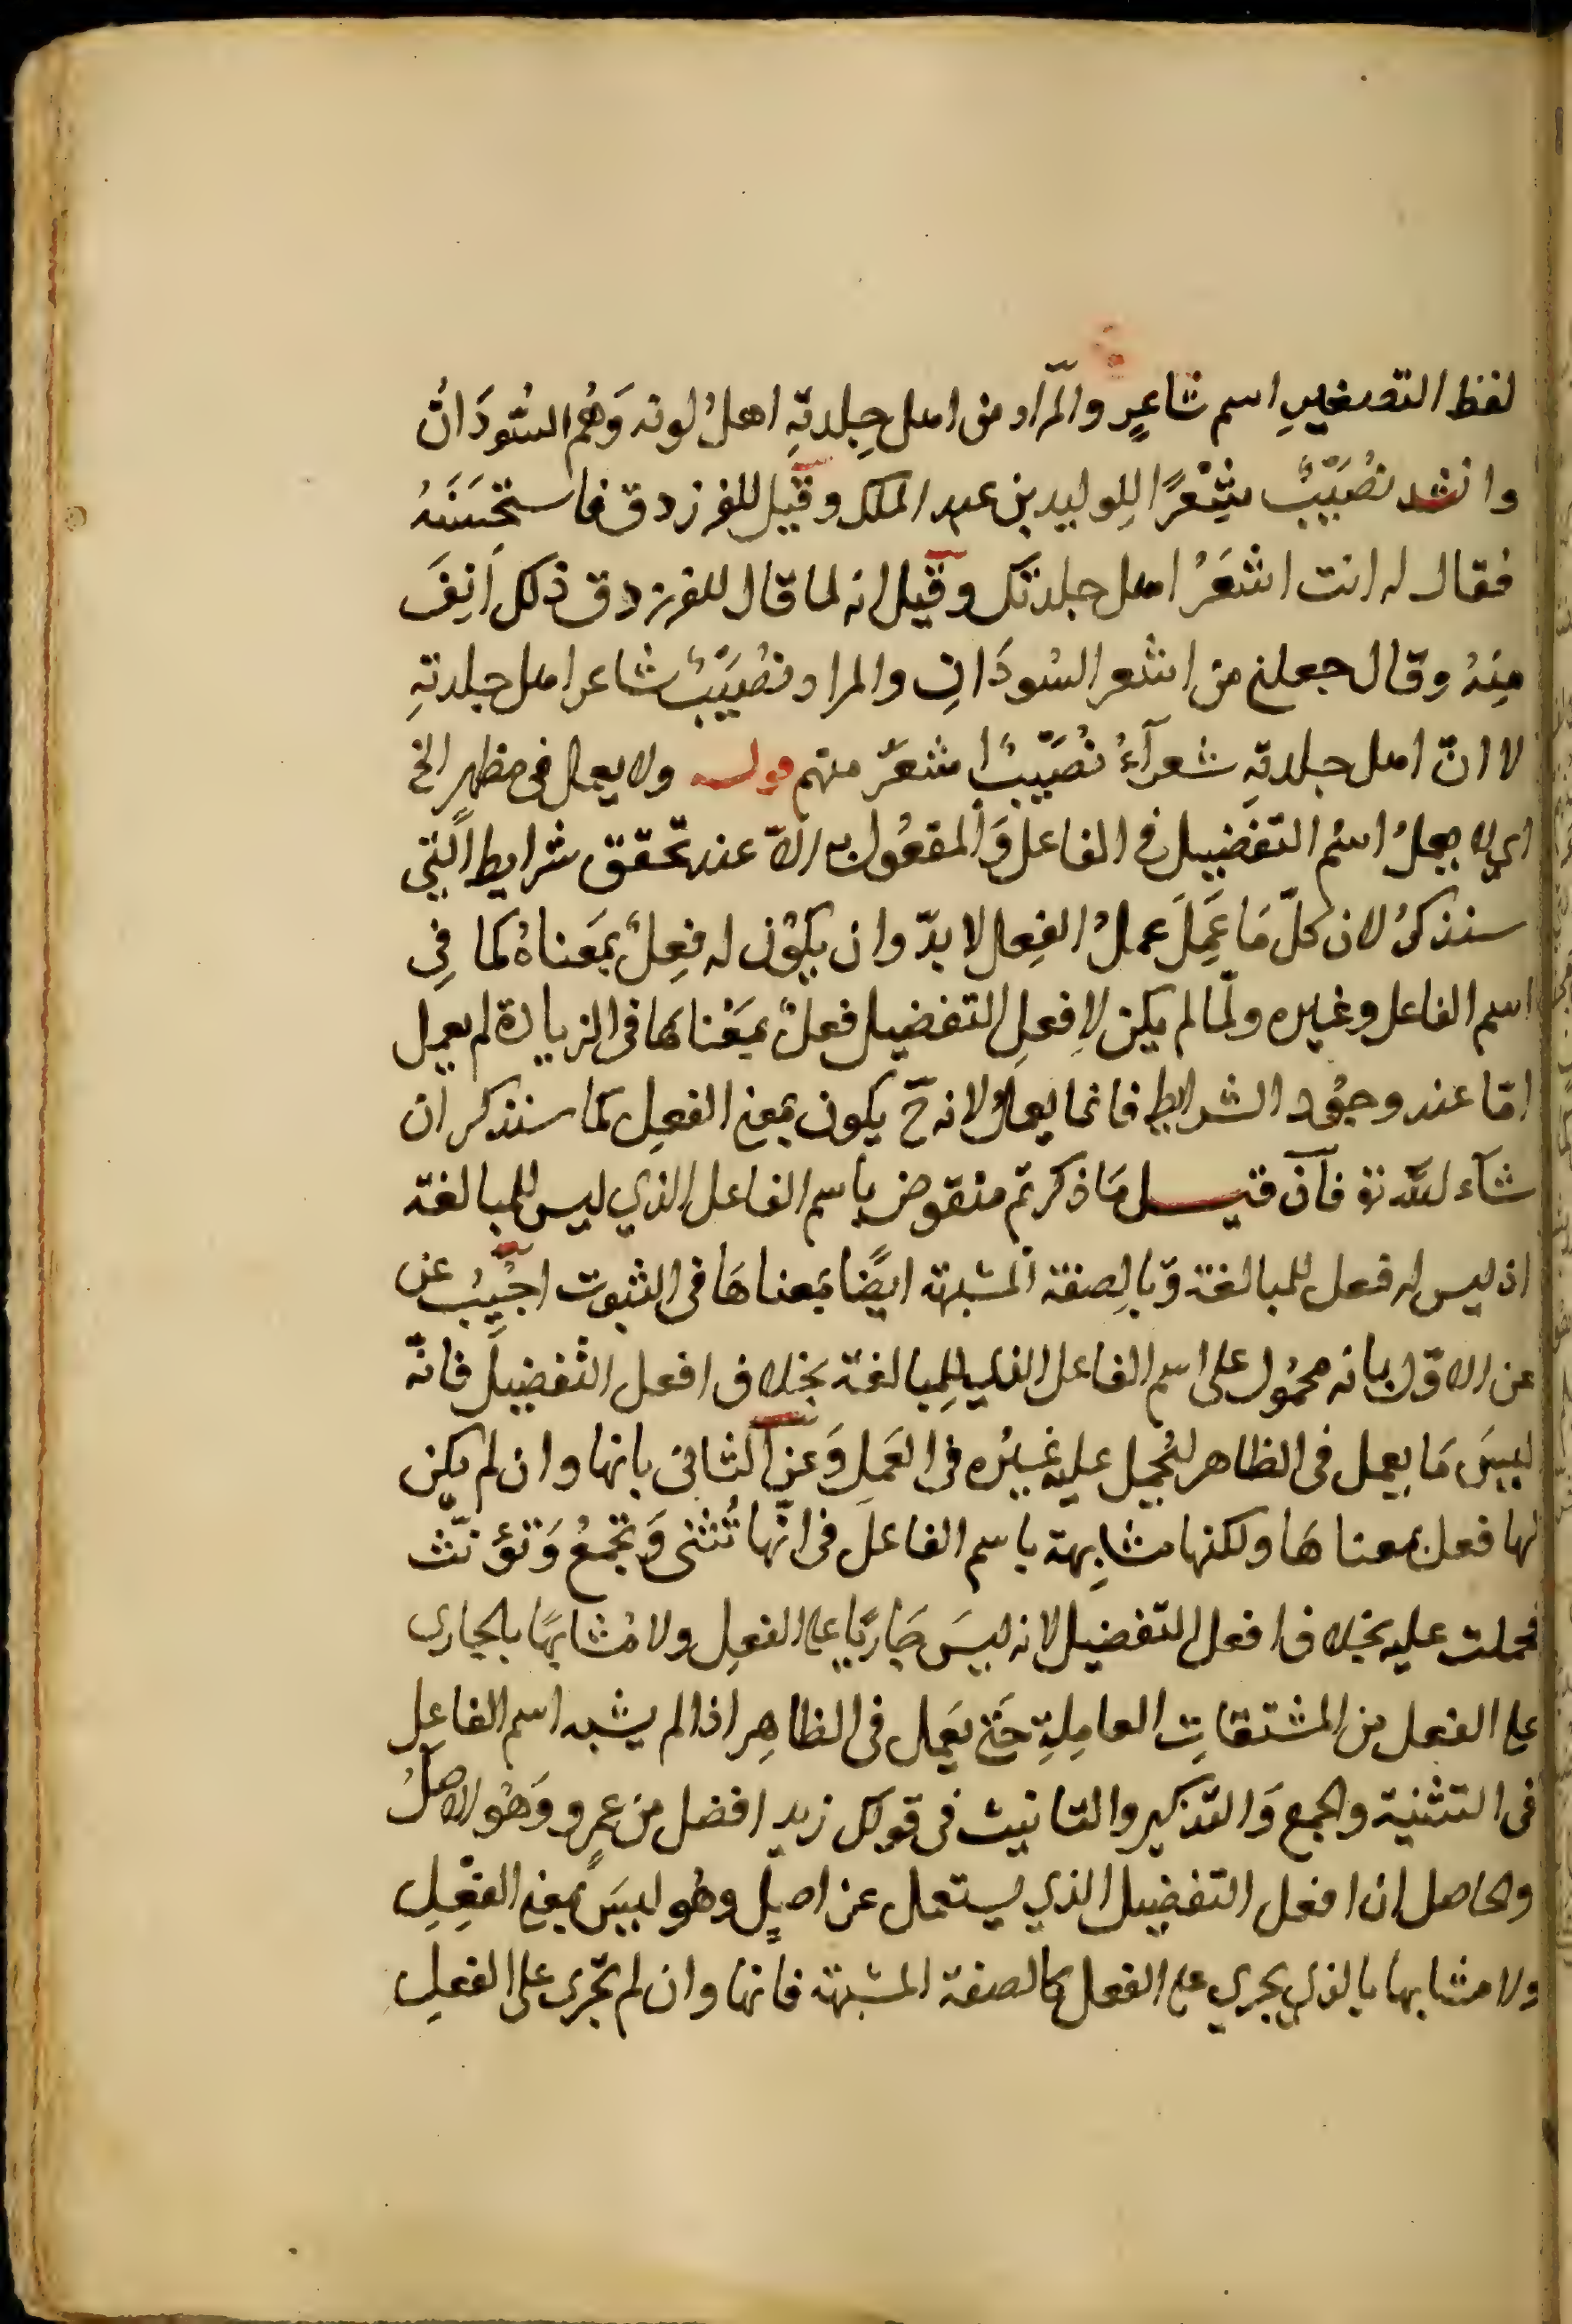 لفظ التصغيرِ اسم شاعرٍ والمراد من اهل جِلدتهِ اهلُ لونه وَهُم السُّودَانُ
وانشد نُصَيبٌ شِعْرًا للوليد بن عبد الملك وقيل للفرزدق فاستحسَنَهُ
فقال له انت اشعَرُ اهل جلدتك وقيل انه لما قال للفرزدق ذلك اَنِفَ
مِنهُ وقال جعلنى من اشعر السُودَانِ والمراد نصَيبٌ شاعر اهل جلدتهِ
لا انّ اهل جلدتهِ شعرآءُ نُصَيبًا اشعرُ منهم قوله ولا يعمل فى مظهرٍ الخ
اى لا يعملُ اسمُ التفضيل فى الفاعل وَالمفعُول به الّا عند تحقق شرايط الّتى
سنذكرُ لان كلّ مَا عَمِلَ عملُ الفِعل لا بدّ وان يكوُن له فِعلٌ بمَعناهُ كما فِى
اسم الفاعل وغيره ولمّا لم يكن لاِفعلِ التفضيل فعلٌ بمَعْناها فى الزيادة لم يعمل
امّا عند وجوُد الشرايط فانما يعملُ لانه حّ يكون بمعنى الفعِل كما سنذكر ان
شآء الله تع فآن قيل مَا ذكرتم منقوض باسم الفاعل الذي ليس للمبالغة
اذ ليس له فعل للمبالغة وَبالصِفة المشبهة ايضًا بمَعناهَا فى الثبوت اجيبُ عن
عن الاوّل بانه محمُول على اسم الفاعل الذى للِمبالغة بخلاف افعل التفضيل فانّه
ليسَ مَا يعمل فى الظاهر ليُحمل عليه غيرُه فى العَملِ وَعن الثانى بانها وان لم يكن
لها فعل بمعناهَا ولكنها مشابِهة باسم الفاعل فى انّها تُثنى وَتجمعُ وَتؤنّث
فحملت عليه بخلاف افعل التفضيل لانه ليسَ جَاريًا على الفعِل ولا مُشابهًا بالجارى
على الفعل من المشتقاتِ العامِلةِ حَتى يَعمل فى الظاهِر اذا لم يشبه اسم الفاعِل
فى التثنية والجمع وَالتذكير والتانيث فى قولك زيد افضل من عمرٍو وَهُو الاصلُ
والحاصل ان افعل التفضيل الذي يستعمل عن اصلٍ وهُو ليسَ بمعنى الفِعْلِ
ولا مشابها بالذى يجري على الفعل كالصفة المشبهة فانها وان لم تجرى على الفعلِ